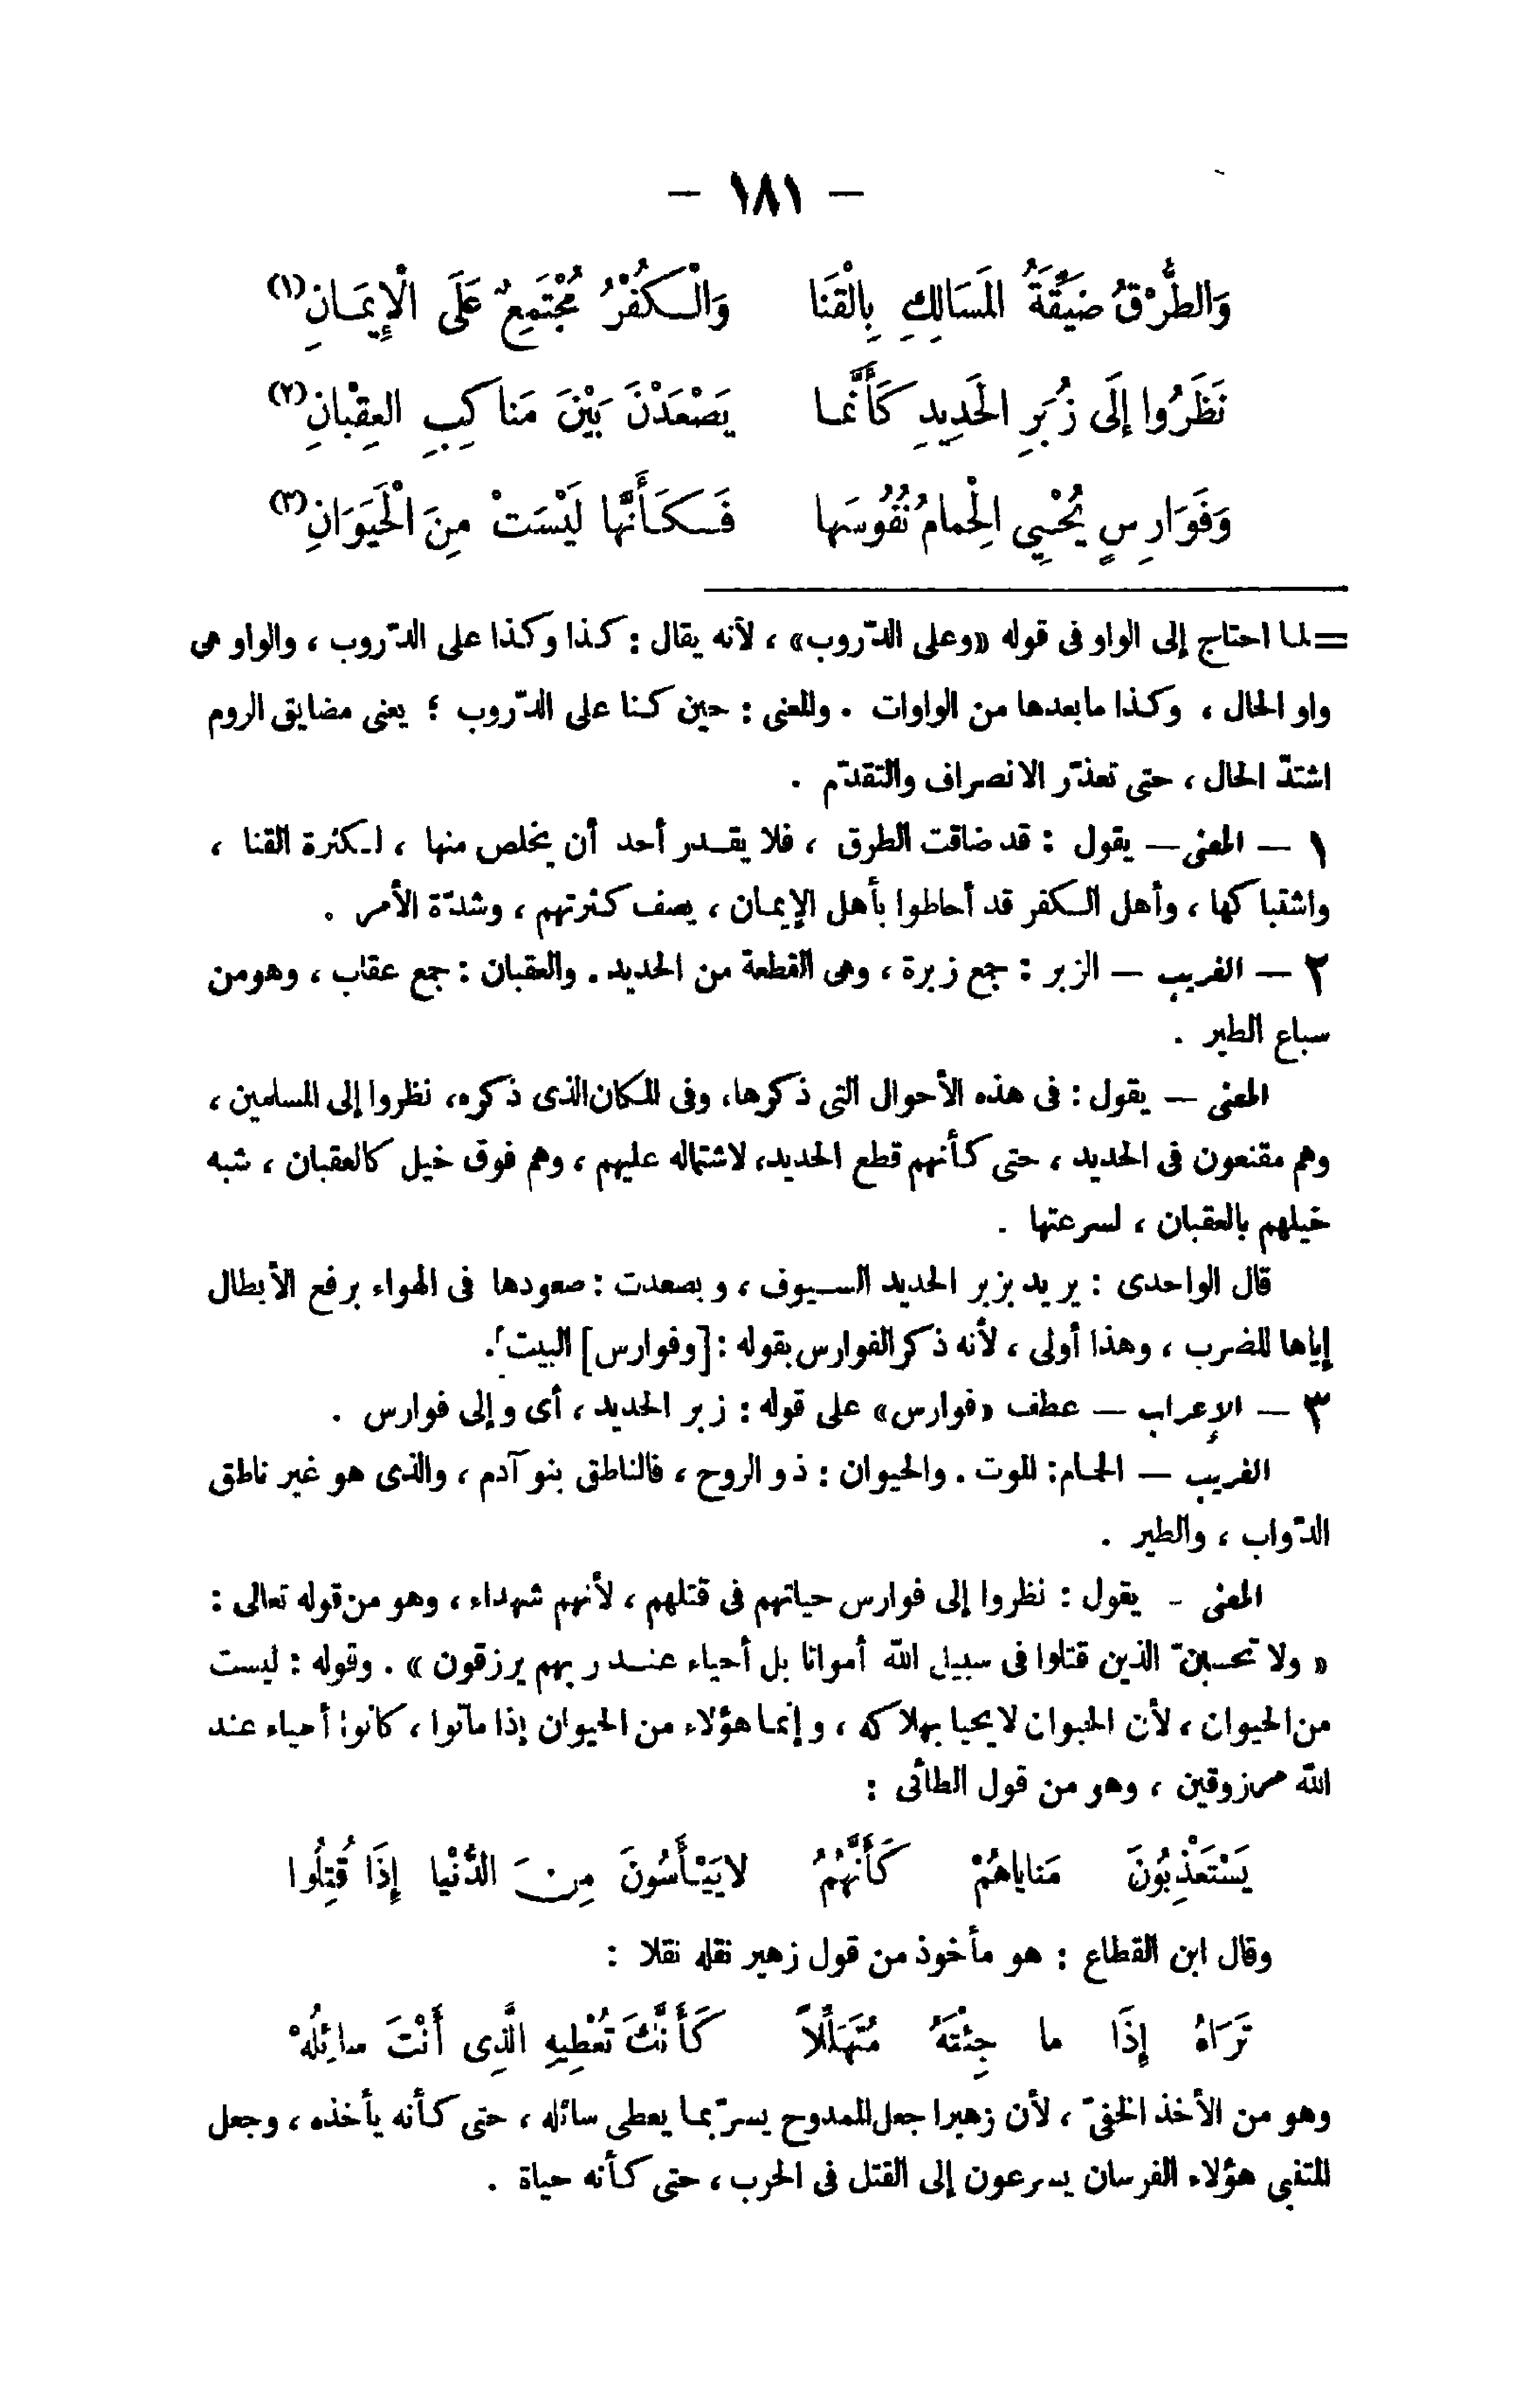 — ١٨١ —
وَالطُّرْقُ ضَيِّقَةُ المَسَالِكِ بِالْقَنَا وَالْكُفْرُ مُجْتَمِعٌ عَلَى الْإِيمَانِ(١)
نَظَرُوا إِلَى زُبَرِ الحَدِيدِ كَأَنَّمَا يَصْعَدْنَ بَيْنَ مَنَاكِبِ العِقْبَانِ(٢)
وَفَوَارِسٍ يُحْيِي الْحِمامُ نُفُوسَها فَكَأَنَّها لَيْسَتْ مِنَ الْحَيَوَانِ(٣)
= لما احتاج إلى الواو فى قوله «وعلى الدّروب» ، لأنه يقال : كذا وكذا على الدّروب ، والواو هى
واو الحال ، وكذا ما بعدها من الواوات . والمعنى : حين كنا على الدّروب ؛ يعنى مضايق الروم
اشتدّ الحال ، حتى تعذّر الانصراف والتقدّم .
١ — المعنى — يقول : قد ضاقت الطرق ، فلا يقدر أحد أن يخلص منها ، لكثرة القنا ،
واشتباكها ، وأهل الكفر قد أحاطوا بأهل الإيمان ، يصف كثرتهم ، وشدّة الأمر .
٢ — الغريب — الزبر : جمع زبرة ، وهى القطعة من الحديد . والعقبان : جمع عقاب ، وهو من
سباع الطير .
المعنى — يقول : فى هذه الأحوال التى ذكرها، وفى المكان الذى ذكره، نظروا إلى المسلمين ،
وهم مقنعون فى الحديد ، حتى كأنهم قطع الحديد، لاشتماله عليهم ، وهم فوق خيل كالعقبان ، شبه
خيلهم بالعقبان ، لسرعتها .
قال الواحدى : يريد بزبر الحديد السيوف ، وبصعدت : صعودها فى الهواء برفع الأبطال
إياها للضرب ، وهذا أولى ، لأنه ذكر الفوارس بقوله : [وفوارس] البيت .
٣ — الإعراب — عطف «فوارس» على قوله : زبر الحديد ، أى وإلى فوارس .
الغريب — الحمام: الموت . والحيوان : ذو الروح ، فالناطق بنو آدم ، والذى هو غير ناطق
الدّواب ، والطير .
المعنى - يقول : نظروا إلى فوارس حياتهم فى قتلهم ، لأنهم شهداء ، وهو من قوله تعالى :
« ولا تحسبنّ الذين قتلوا فى سبيل الله أمواتا بل أحياء عند ربهم يرزقون » . وقوله : ليست
من الحيوان ، لأن الحيوان لا يحيا بهلاكه ، وإنما هؤلاء من الحيوان إذا ماتوا ، كانوا أحياء عند
الله مرزوقين ، وهو من قول الطائى :
يَسْتَعْذِبُونَ مَناياهُمْ كَأَنَّهُمُ لا يَيْأَسُونَ مِنَ الدُّنْيا إِذَا قُتِلُوا
وقال ابن القطاع : هو مأخوذ من قول زهير نقله نقلا :
تَرَاهُ إِذَا ما جِئْتَهُ مُتَهَلِّلاً كَأَنَّكَ تُعْطِيهِ الَّذِى أَنْتَ سائِلُهْ
وهو من الأخذ الخفىّ ، لأن زهيرا جعل الممدوح يسرّ بما يعطى سائله ، حتى كأنه يأخذه ، وجعل
المتنبي هؤلاء الفرسان يسرعون إلى القتل فى الحرب ، حتى كأنه حياة .